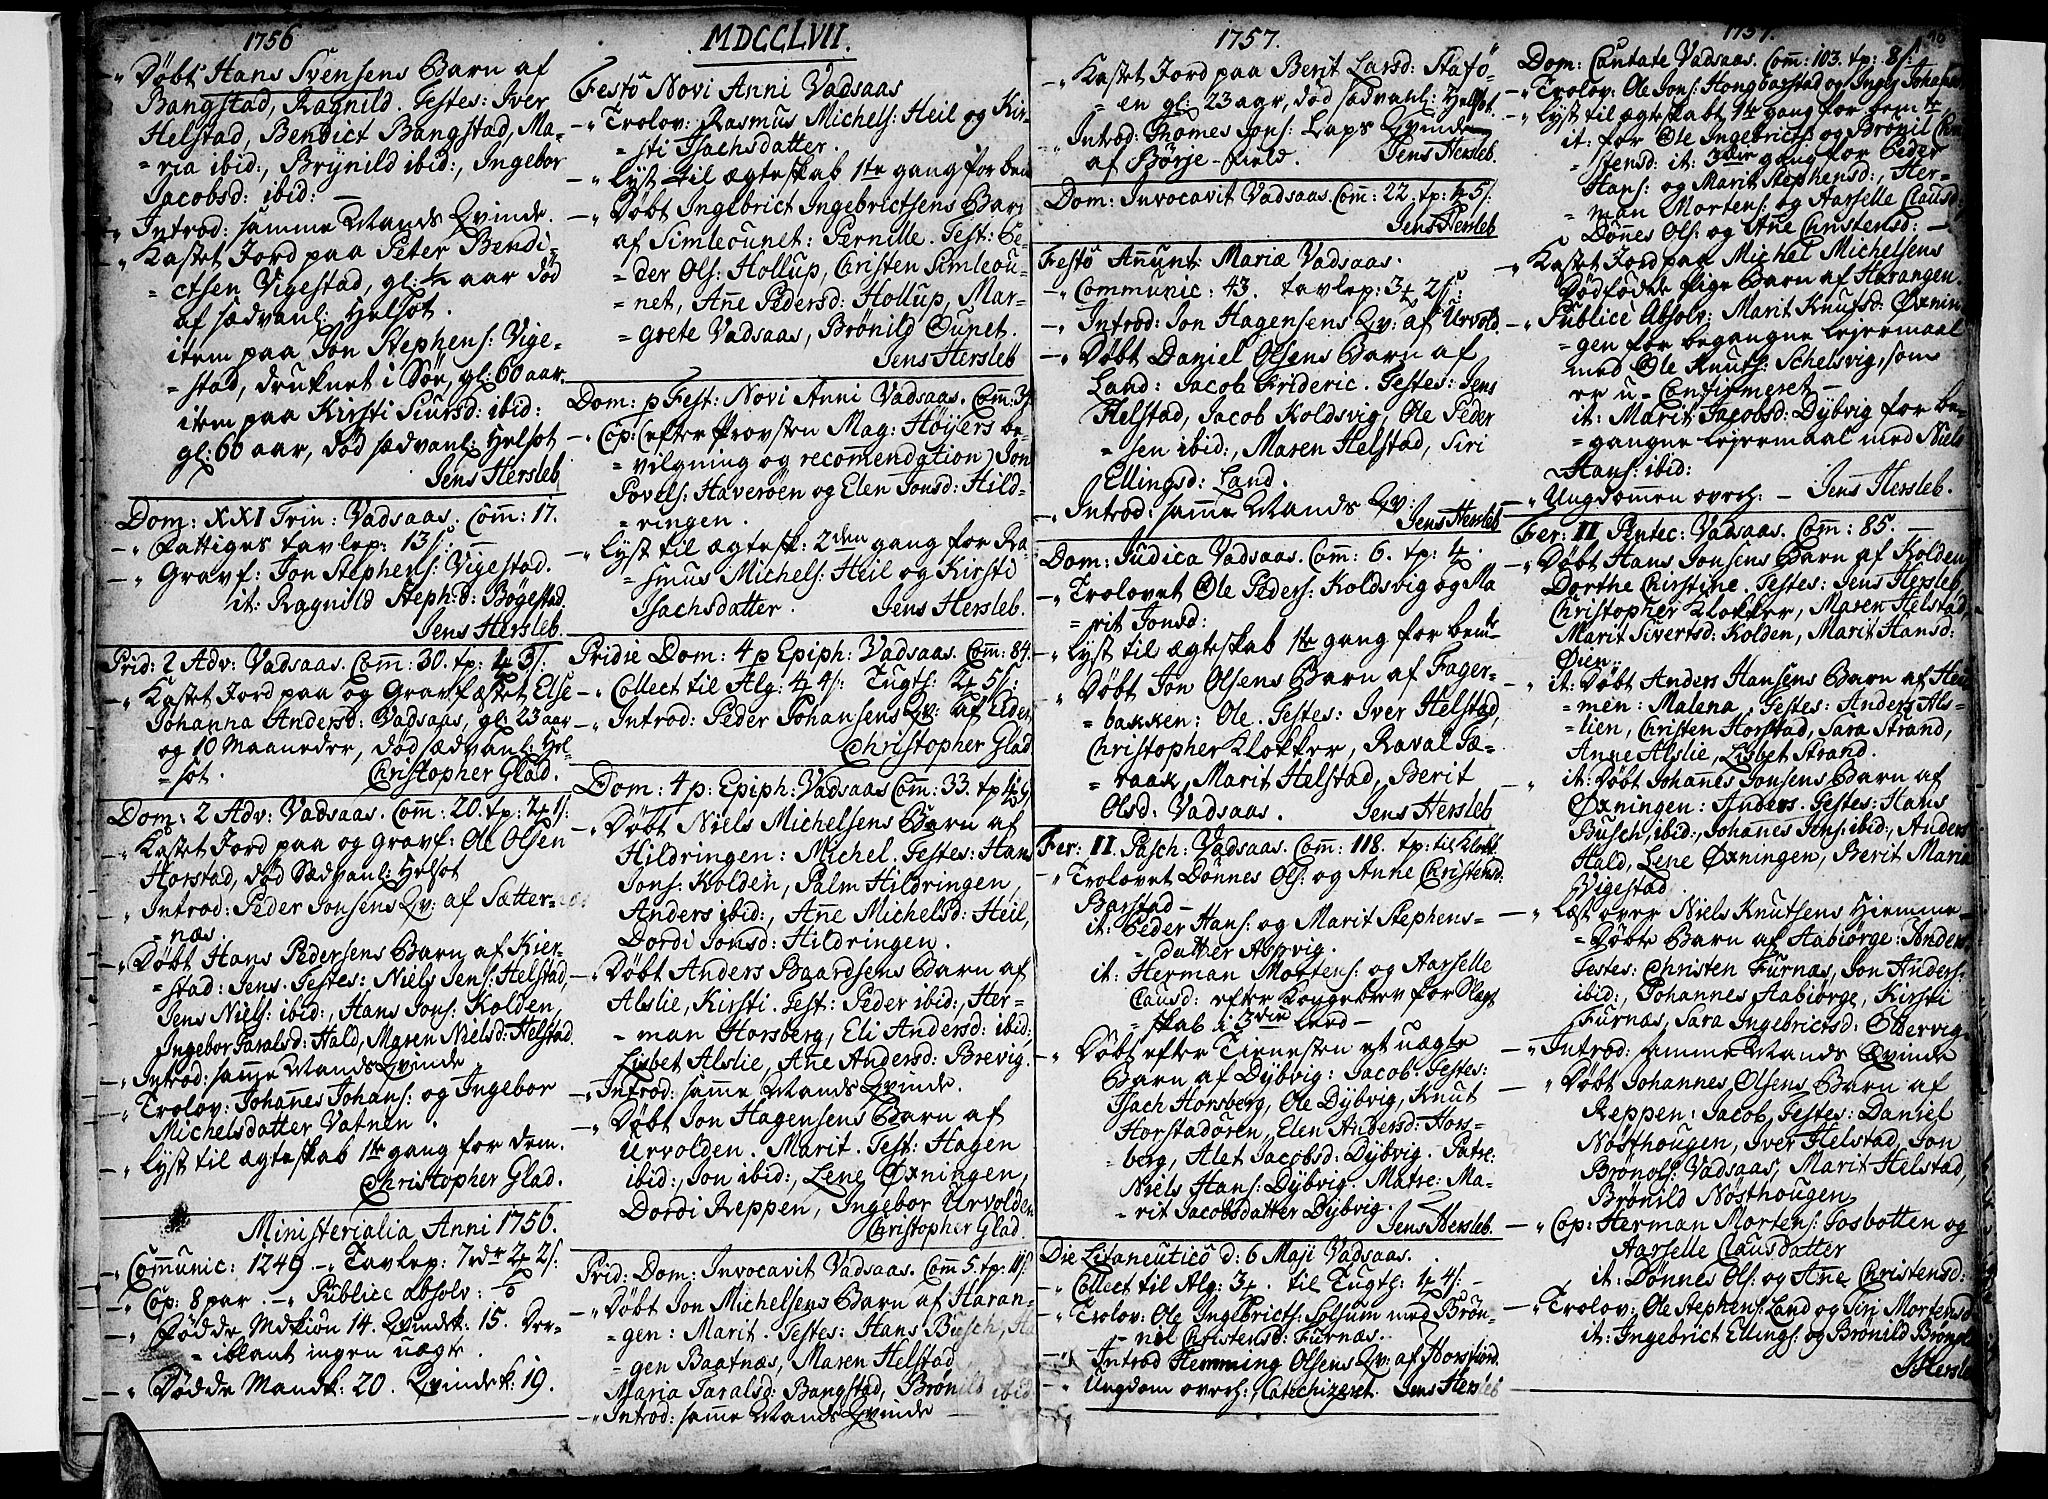 1756
" Døbt Hans Svensens Barn af
Bangstad, Ragnild. Testes: Iver
Helstad, Bendict Bangstad, Ma-
=ria ibid:, Brÿnild ibid:, Ingebor
Jacobsd: ibid: —
" Introd: samme Mands Qvinde.
" Kastet Jord paa Peter Bendi-
=ctsen Vigestad, gl: ½ aar død
af sædvanl: Helsot.
item paa Jon Stephens: Vige-
=stad, druknet i Søe, gl: 60 aar.
item paa Kirsti Siursd: ibid:
gl: 60 aar, død sædvanl: Helsot
Jens Hersleb
Dom: XXI Trin: Vadsaas. Com̄: 17.
—" Fattiges tavlep: 13 s: —
—" Gravf: Jon Stephens: Vigestad.
it: Ragnild Steph:d: Bøgestad.
Jens Hersleb.
Prid: 2 Adv: Vadsaas. Com̄: 30. tp: 1 3 s:
—" Kastet Jord paa og Gravfæstet Else
Johanna Andersd: Vadsaas, gl: 23 aar
og 10 Maaneder, død sædvanl: Hel-
=sot. Christopher Glad.
Dom: 2 Adv: Vadsaas. Com̄: 20. tp: 2 1 s:
—" Kastet Jord paa og gravf: Ole Olsen
Horstad, død Sædvanl: Helsot
—" Introd: Peder Jonsens Qv: af Sætter-
=næs.
—" Døbt Hans Pedersens Barn af Kier-
=stad: Jens. Testes: Niels Jens: Helstad,
Jens Niels: ibid:, Hans Jons: Kolden,
Ingebor Taralsd: Hald, Maren Nielsd: Helstad.
—" Introd: sam̄e Mands Qvinde
—" Trolov: Johan̄es Johans: og Ingebor
Michelsdatter Vatnen.
—" lyst til ægteskab 1te gang for dem.
Christopher Glad.
Ministerialia Anni 1756.
—" Com̄unic: 1249 —" Tavlep: 7 rdr 2 2 s:
—" Cop: 8 par. —" Publice absolv: 
—" Fødde Mdkiön 14. Qvindek: 15. Der-
=iblant ingen uægte.
—" Dødde Mandk: 20. Qvindek: 19.
MDCCLVII.
Festo Novi Anni Vadsaas
—" Trolov: Rasmus Michels: Heil og Kir-
=sti Isachsdatter.
—" lyst til ægteskab 1te gang for bem
—" Døbt Ingebrict Ingebrictsens Barn
af Simleounet: Pernille. Test: Pe-
=der Ols: Hollup, Christen Simleou-
=net, An̄e Pedersd: Hollup, Mar-
=grete Vadsaas, Brönild Ounet.
Jens Hersleb
Dom: p Fest: Novi Anni Vadsaas. Com̄: 
—" Cop: (efter Provsten Mag: Høÿers be-
=vilgning og recom̄endation) Jon
Povels: Haveroen og Elen Jonsd: Hild-
=ringen.
—" lyst til ægtesk: 2den gang for Ra-
=smus Michels: Heil og Kirsti
Isachsdatter. Jens Hersleb.
Pridie Dom: 4 p Epiph: Vadsaas. Com̄: 84.
—" Collect til Alg: 4 4 s: Tugts: 2 5 s:
—" Introd: Peder Johansens Qv: af Eiden
Christopher Glad
Dom: 4 p: Epiph: Vadsaas Com̄: 33. tp
—" Døbt Niels Michelsens Barn af
Hildringen: Michel. Testes: Hans
Jons: Kolden, Palm Hildringen,
Anders ibid:, An̄e Michelsd: Heil,
Dordi Jonsd: Hildringen.
—" Døbt Anders Baardsens Barn af
Alslie, Kirsti. Test: Peder ibid:, Her-
=man Horsberg, Eli Andersd: ibid:,
Lisbet Alslie, An̄e Andersd: Brevig.
—" Introd: sam̄e Mands Qvinde.
—" Døbt Jon Hagensens Barn af
Urvolden. Marit. Test: Hagen
ibid:, Jon ibid:, Lene Øxningen,
Dordi Reppen, Ingebor Urvolden
Christopher Glad.
Prid: Dom: Invocavit Vadsaas. Com̄ 5. tp: 11 s:
—" Døbt Jon Michelsens Barn af Haran-
gen: Marit. Testes: Hans Busch, Ha
=gen Baatnæs, Maren Helstad
Maria Taralsd: Bangstad, Brönild ibid
—" Introd: sam̄e Mands Qvinde —
1757.
—" Kastet Jord paa Berit Larsd: Stafö-
=en gl: 23 aar, død sædvanl: Helsot.
—" Introd: Thomes Jons: Laps Qvinde
af Børje-field. Jens Hersleb.
Dom: Invocavit Vadsaas. Com̄: 22. tp: 1 5 s:
Jens Hersleb
Festo An̄unt: Mariæ Vadsaas.
—" Communic: 43. tavlep: 3 2 s:
—" Introd: Jon Hagensens Qv: af Urvold
—" Døbt Daniel Olsens Barn af
Land: Jacob Frideric. Testes: Jens
Helstad, Jacob Koldsvig, Ole Peder
=sen ibid:, Maren Helstad, Siri
Ellingsd: Land.
—" Introd: sam̄e Mands Qv: Jens Hersleb
Dom: Judica Vadsaas. Com̄: 6. tp: 1.
—" Trolovet Ole Peders: Koldsvig og Ma
=rit Jonsd:
—" lyst til ægteskab 1te gang for bemte
—" Døbt Jon Olsens Barn af Fager-
=bakken: Ole. Testes: Iver Helstad,
Christopher Klokker, Raval Tæ-
=raas, Marit Helstad, Berit
Olsd: Vadsaas. Jens Hersleb
Fer: II. Pasch: Vadsaas. Com̄: 118. tp: til Klokk.
—" Trolovet Dönnes Ols: og Anne Christensd:
Barstad —
it: Peder Hans: og Marit Stephens-
=datter Aspvig.
it: Herman Mortens: og Aarselle
Clausd: efter Kongebrev for Slegt
=skab i 3die leed —
—" Døbt efter Tienesten et uægte
Barn af Dÿbvig: Jacob: Testes:
Isach Horsberg, Ole Dÿbvig, Knut
Horstadören, Elen Andersd: Hors-
=berg, Alet Jacobsd: Dÿbvig. Patre:
Niels Hans: Dÿbvig. Matre: Ma-
=rit Jacobsdatter Dÿbvig.
Jens Hersleb.
Die Litaneutico d: 6 Maji Vadsaas.
—" Collect til Alg: 3. til Tugts: 1 4 s: —
—" Trolov: Ole Ingebricts: Solsum med Brön-
=nel Christensd: Furnæs.
—" Introd Flemming Olsens Qv: af Horsfiord.
—" Ungdom overh: Catechizeret. Jens Hersleb
1757.
Dom: Cantate Vadsaas. Com̄: 103. tp: 8 s:
—" Trolov: Ole Jons: Hongbarstad og Ingeb: Johansd
—" lyst til ægteskabt 1te gang for bemte
it: for Ole Ingebricts: og Brönil Chri
=stensd: it: 3die gang for Peder
Hans: og Marit Stephensd:, Her-
=man Mortens: og Aarselle Clausd:
Dönnes Ols: og Ane Christensd: —
—" Kastet Jord paa Michel Michelsens
Dødfødde Pige Barn af Harangen.
—" Publice Absolv: Marit Knutsd: Øxnin
=gen for begangne lejermaal
med Ole Knuts: Schelsvig, som
er u-Confirmeret —
it: Marit Jacobsd: Dÿbvig for be-
=gangne lejermaal med Niels
Hans: ibid:
—" Ungdommen overh: — Jens Hersleb.
Fer: II Pentec: Vadsaas. Com̄: 85. —
—" Døbt Hans Jonsens Barn af Kolden,
Dorthe Chirstine. Testes: Jens Hersleb,
Christopher Klokker, Maren Helstad,
Marit Sivertsd: Kolden, Marit Hansd:
Øien.
—" it: Døbt Anders Hansens Barn af Hei
=men: Malena. Testes: Anders Als-
=lien, Christen Horstad, Sara Strand,
Anne Alslie, Lisbet Strand.
—" it: Døbt Johannes Jonsens Barn af
Øxningen: Anders. Testes: Hans
Busch, ibid:, Johannes Jens: ibid:, Anders
Hald, Lene Øxningen, Berit Maria
Vigestad.
—" læst over Niels Knutsens Hiemme-
=Døbte Barn af Aabiørge: Anders
Testes: Christen Furnæs, Jon Anders:
ibid:, Johannes Aabiørge, Kirsti
Furnæs, Sara Ingebrictsd: Ottervig.
—" Introd: samme Mands Qvinde
—" Døbt Johannes Olsens Barn af
Reppen: Jacob. Testes: Daniel
Nösthougen, Iver Helstad, Jon
Brönols: Vadsaas, Marit Helstad,
Brönild Nösthougen
—" Cop: Herman Mortens: Fosbotten og
Aarselle Clausdatter
it: Dönnes Ols: og Ane Christensd:
—" Trolov: Ole Stephens: Land og Siri Mortensd
it: Ingebrict Ellings: og Brönild Brönols
J Hersleb